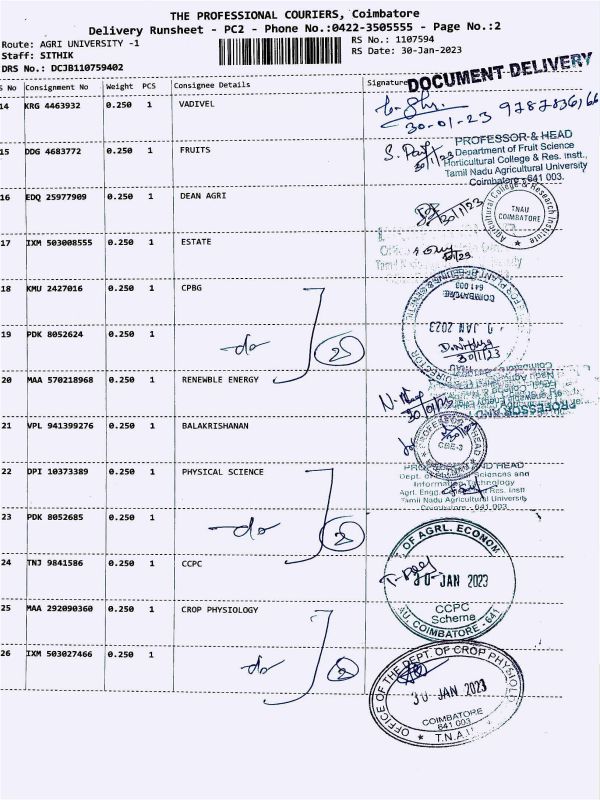 THE PROFESSIONAL COURIERS, Coimbatore
Delivery Runsheet - PC2 - Phone No.:0422-3505555 - Page No.:2
Route: AGRI UNIVERSITY -1
Staff: SITHIK
DRS No.: DCJB110759402
RS No.: 1107594
RS Date: 30-Jan-2023
S No Consignment No Weight PCS Consignee Details Signature
DOCUMENT DELIVERY
14 KRG 4463932 0.250 1 VADIVEL
30-01-23
15 DDG 4683772 0.250 1 FRUITS
30/1/23
PROFESSOR & HEAD
Department of Fruit Science
Horticultural College & Res. Instt.,
Tamil Nadu Agricultural University
Coimbatore - 641 003.
16 EDQ 25977909 0.250 1 DEAN AGRI
30/1/23
Agricultural College & Research Institute
TNAU
COIMBATORE
17 IXM 503008555 0.250 1 ESTATE
18 KMU 2427016 0.250 1 CPBG
COIMBATORE
641 003
JAN 2023
30/1/23
DIRECTOR
19 PDK 8052624 0.250 1
-do- 2
20 MAA 570218968 0.250 1 RENEWBLE ENERGY
21 VPL 941399276 0.250 1 BALAKRISHANAN
PROFESSOR & HEAD
CBE-3
22 DPI 10373389 0.250 1 PHYSICAL SCIENCE
PROFESSOR AND HEAD
Dept. of Physical Sciences and
Information Technology
Agrl. Engg. Res. Instt
Tamil Nadu Agricultural University
Coimbatore - 641 003.
23 PDK 8052685 0.250 1
-do- 2
24 TNJ 9841586 0.250 1 CCPC
OF AGRL. ECONOM
30 JAN 2023
CCPC
Scheme
AU, COIMBATORE - 641
25 MAA 292090360 0.250 1 CROP PHYSIOLOGY
26 IXM 503027466 0.250 1
-do- 2
OFFICE OF THE DEPT. OF CROP PHYSIOLO
30 JAN 2023
COIMBATORE
641 003
T.N.A.U